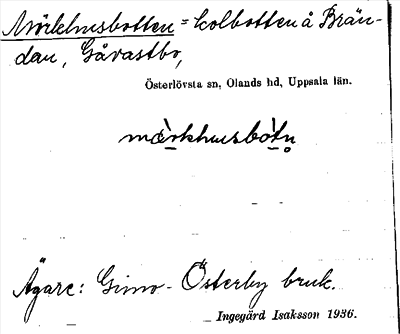 Mörkhusbotten = kolbotten å Brän-
dan, Gåvastbo,
Österlövsta sn, Olands hd, Uppsala län.
mörkhusbòtn̥
Ägare: Gimo-Österby bruk.
Ingegärd Isaksson 1936.